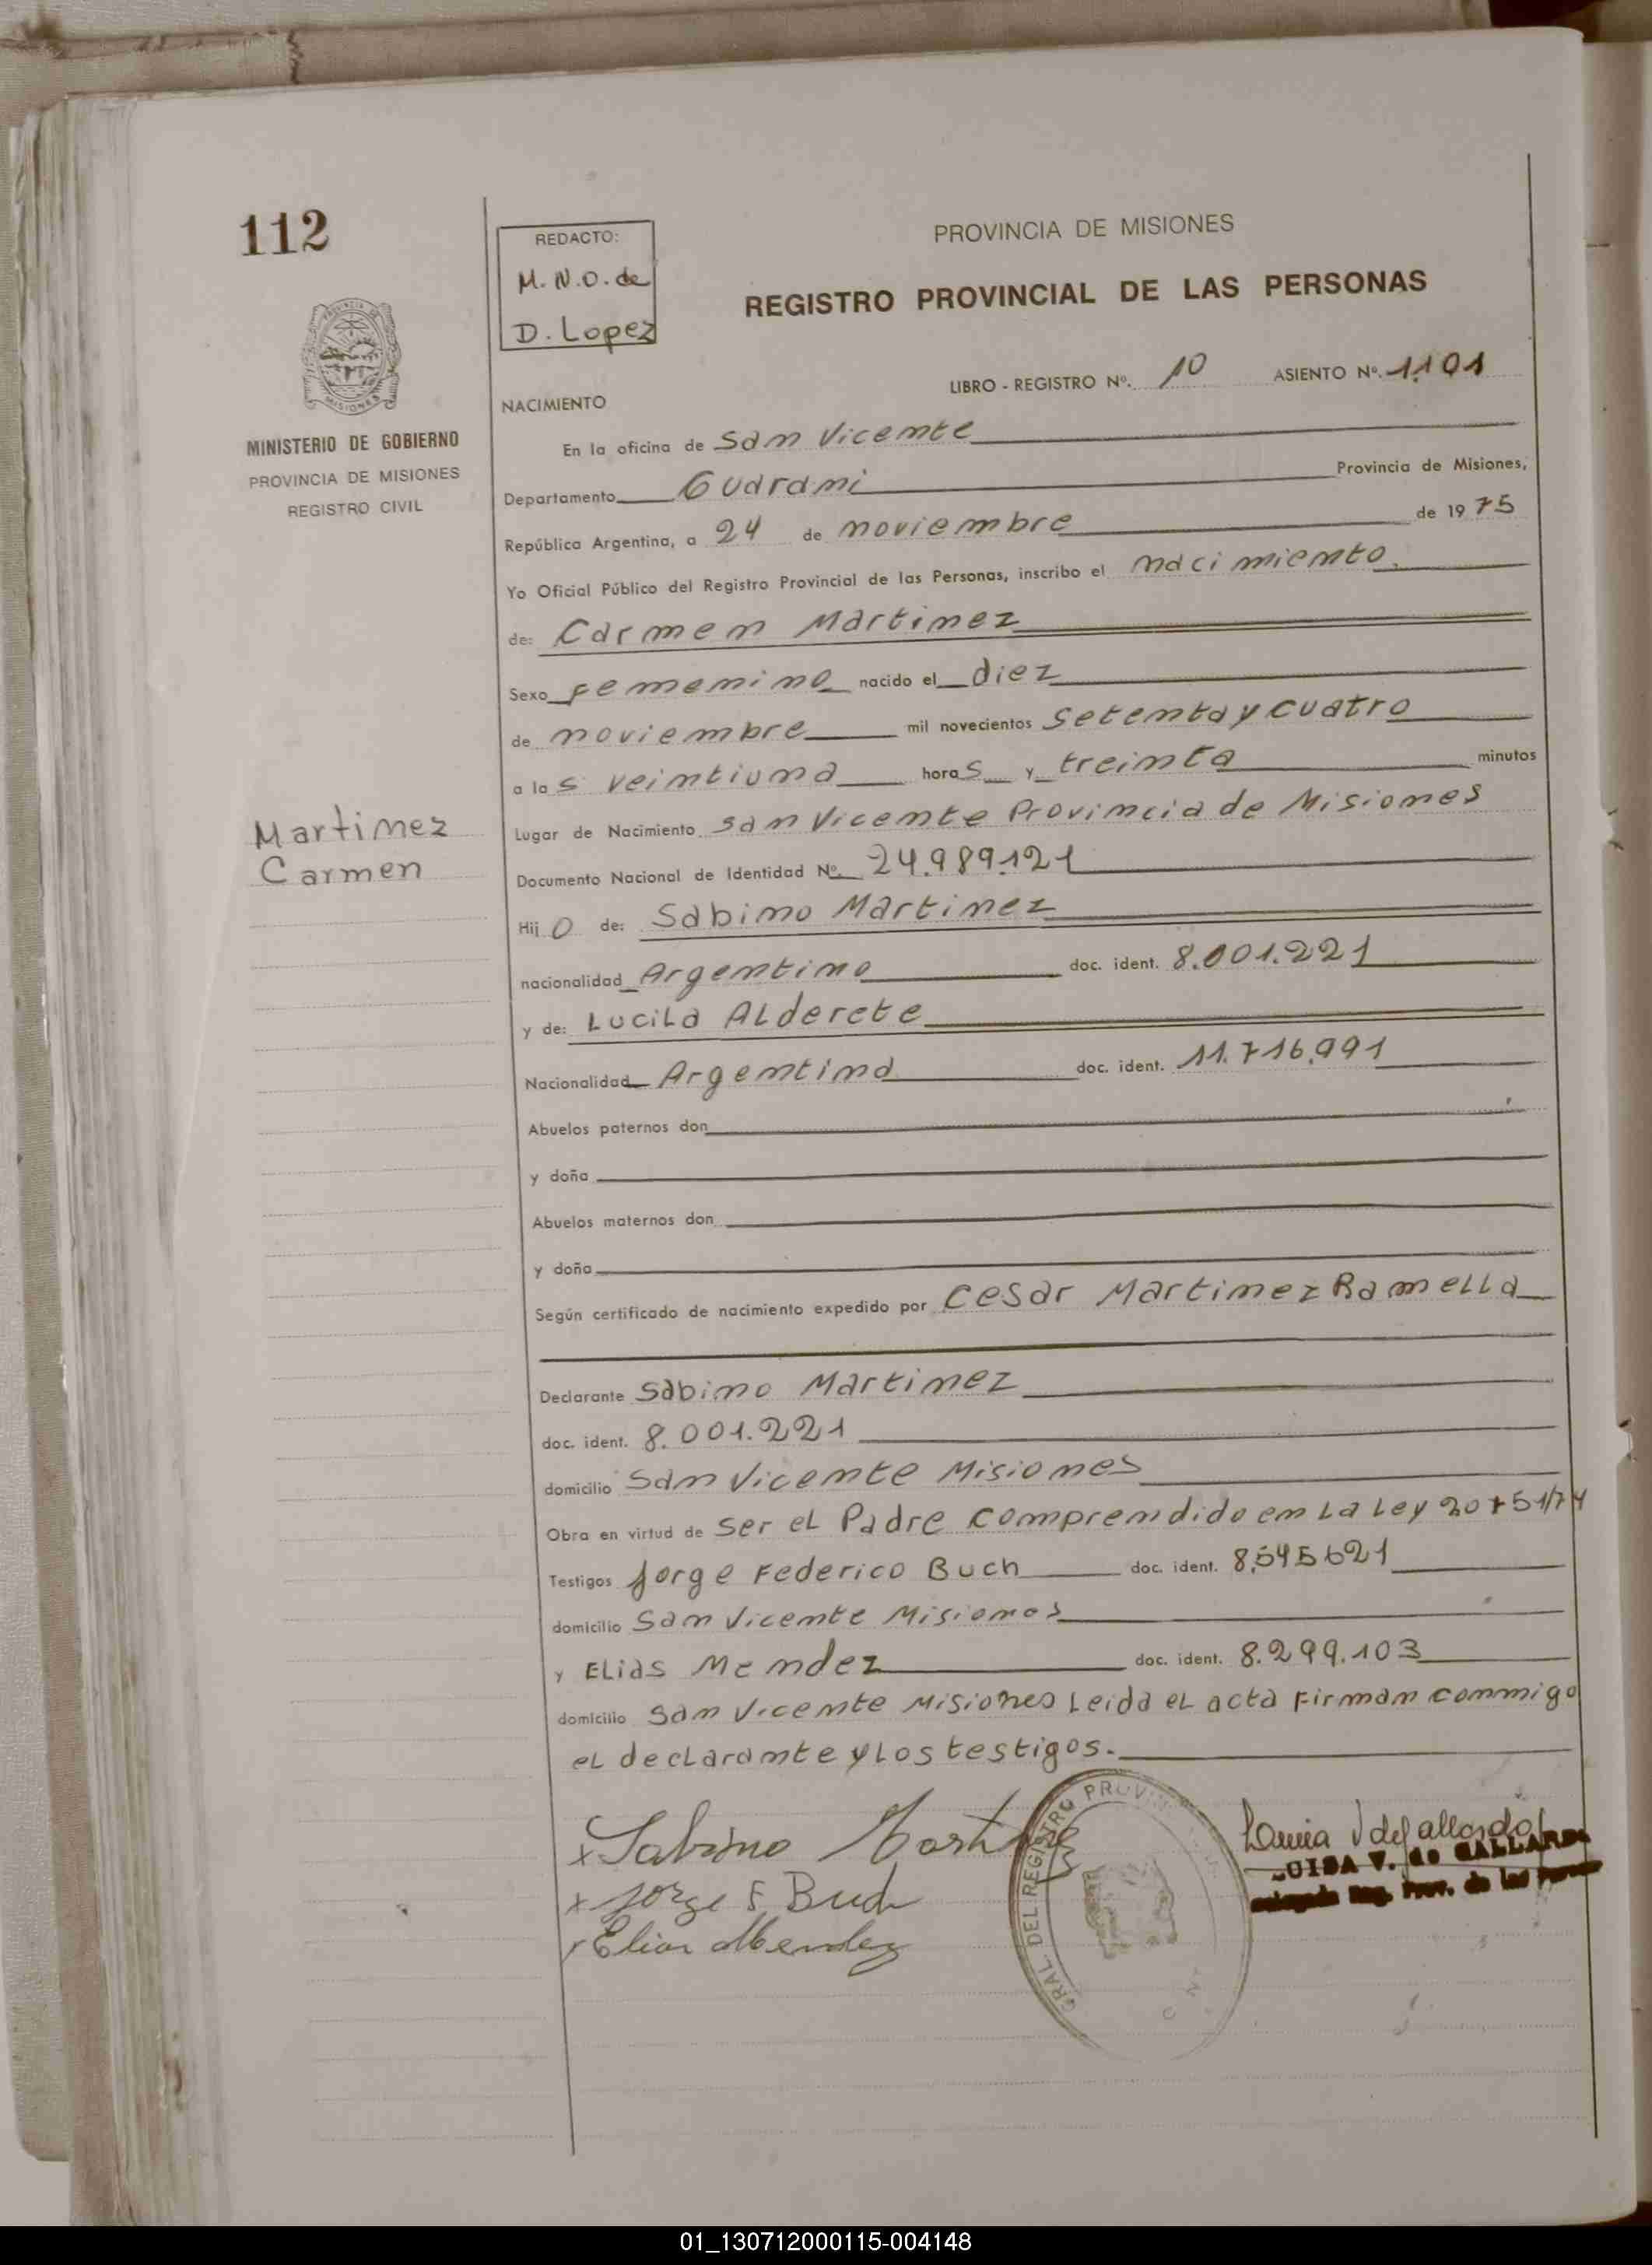 112
REDACTO:
M. N. O. de
D. Lopez
PROVINCIA DE MISIONES
REGISTRO PROVINCIAL DE LAS PERSONAS
LIBRO - REGISTRO Nº. 10 ASIENTO Nº. 1.101
MINISTERIO DE GOBIERNO
PROVINCIA DE MISIONES
REGISTRO CIVIL
NACIMIENTO
En la oficina de San Vicente
Departamento Guarani Provincia de Misiones,
República Argentina, a 24 de noviembre de 1975
Yo Oficial Público del Registro Provincial de las Personas, inscribo el nacimiento
de: Carmen Martinez
Sexo femenino nacido el diez
de noviembre mil novecientos setenta y cuatro
a las veintiuna horas y treinta minutos
Martinez
Carmen
Lugar de Nacimiento San Vicente Provincia de Misiones
Documento Nacional de Identidad Nº. 24.989.121
Hijo de: Sabino Martinez
nacionalidad Argentino doc. ident. 8.001.221
y de: Lucila Alderete
Nacionalidad Argentina doc. ident. 11.716.991
Abuelos paternos don
y doña
Abuelos maternos don
y doña
Según certificado de nacimiento expedido por Cesar Martinez Ramella
Declarante Sabino Martinez
doc. ident. 8.001.221
domicilio San Vicente Misiones
Obra en virtud de ser el Padre comprendido en la Ley 20751/74
Testigos Jorge Federico Buch doc. ident. 8.545621
domicilio San Vicente Misiones
y Elias Mendez doc. ident. 8.299.103
domicilio San Vicente Misiones Leida el acta firman conmigo
el declarante y los testigos.
x Sabino Martinez
x Jorge F Buch
x Elias Mendez
GRAL. DEL REGISTRO PROVIN
V de Gallardo
LUISA V. de GALLARDO
Reg. Prov. de las Personas
01_130712000115-004148